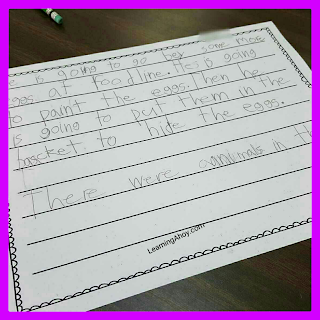 is going to go buy some more
eggs at foodline. He is going
to paint the eggs. Then he
is going to put them in the
basket to hide the eggs.
There were in th
LearningAhoy.com